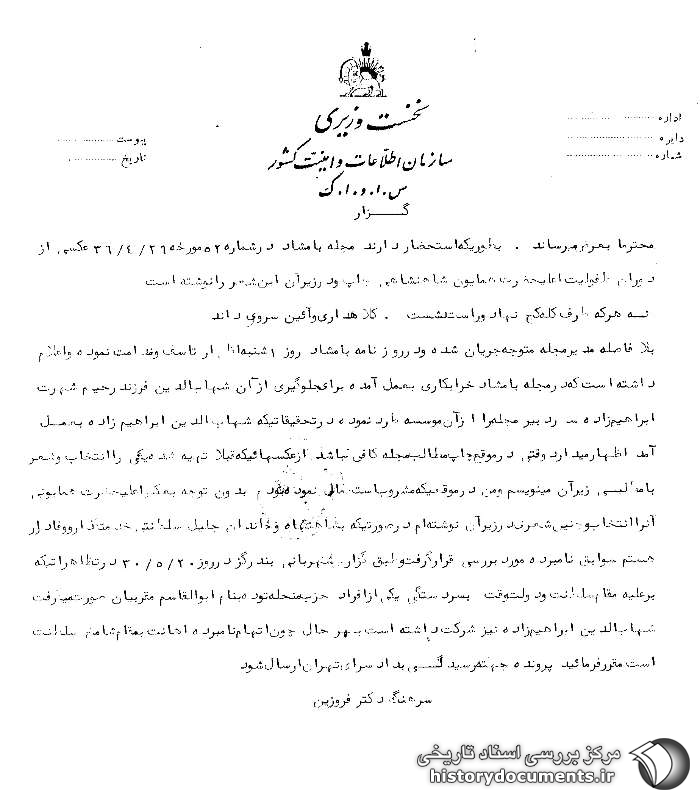 نخست وزیری
سازمان اطلاعات و امنیت کشور
س.ا.و.ا.ک
اداره
دایره
شماره
پیوست
تاریخ
گزار
محترما بعرض میرساند . بطوریکه استحضار دارند مجله بامشاد در شماره ۵۲ مورخه ۳۶/۴/۲۹ عکسی از
دوران طفولیت اعلیحضرت همایون شاهنشاهی چاپ و در زیر آن این شعر را نوشته است
نه هرکه طرف کله کج نهاد و راست نشست . کلاهداری و آئین سروری داند
بلا فاصله مدیر مجله متوجه جریان شده و در روزنامه بامشاد روز ۱ شنبه اظهار تاسف و ندامت نموده و اعلام
داشته است که در مجله بامشاد خرابکاری بعمل آمده برای جلوگیری از آن شهاب الدین فرزند رحیم شهرت
ابراهیم زاده سردبیر مجله را از آن موسسه طرد نموده در تحقیقاتیکه شهاب الدین ابراهیم زاده بعمل
آمد اظهار میدارد وقتی در موقع چاپ مطالب مجله کافی نباشد از عکسهائیکه قبلا تهیه شده یکی را انتخاب و شعر
یا مطلبی زیر آن مینویسم و من در موقعیکه مشروب است بدون توجه بعکس اعلیحضرت همایونی
آنرا انتخاب و چنین شعری در زیر آن نوشته ام در صورتیکه بشاهنشاه و خاندان جلیل سلطنتی خدمتگذار و وفادار
هستم سوابق نامبرده مورد بررسی قرار گرفت و طبق گزارش شهربانی بندر گز در روز ۳۰/۵/۲۰ در تظاهراتیکه
بر علیه مقام سلطنت و دولت وقت بسردستگی یکی از افراد حزب منحله توده بنام ابوالقاسم مقربیان صورت میگرفت
شهاب الدین ابراهیم زاده نیز شرکت داشته است بهر حال چون اتهام نامبرده اهانت بمقام شامخ سلطنت
است مقرر فرمائید پرونده جهت رسیدگی بدادسرای تهران ارسال شود
سرهنگ دکتر فروزین
مرکز بررسی اسناد تاریخی
historydocuments.ir